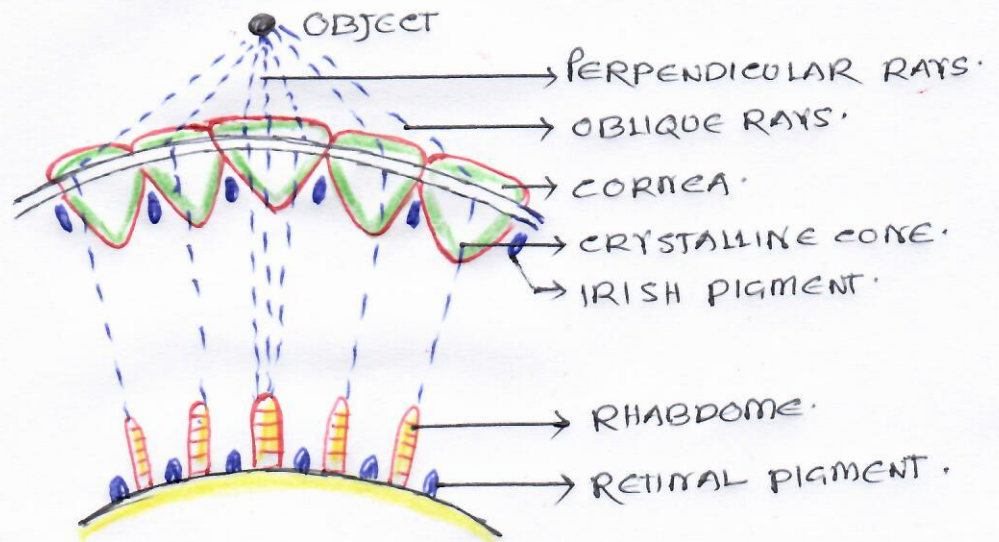 OBJECT
PERPENDICULAR RAYS.
OBLIQUE RAYS.
CORNEA.
CRYSTALLINE CONE.
IRISH PIGMENT.
RHABDOME.
RETINAL PIGMENT.